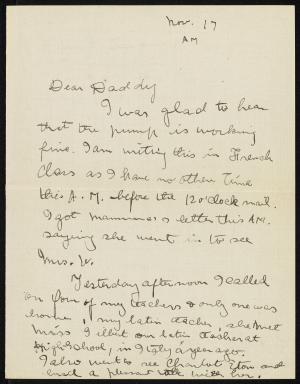 Nov. 17
AM
Dear Daddy
I was glad to hear
that the pump is working
fine. I am writing this in French
Class as I have no other time
this A. M. before the 12 o'clock mail.
I got Mamma's letter this AM.
saying she went in to see
Mrs. W.
Yesterday afternoon I called
on four of my teachers & only one was
home, my latin teacher, she met
Miss our latin teacher at
High School, in Italy a year ago.
I also went to see and
had a pleasant talk with her.